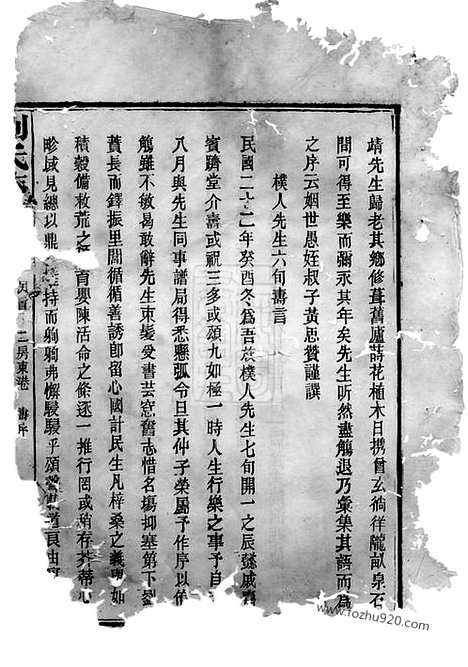 靖先生歸老其鄉修葺舊廬蒔花植木日攜曾玄徜徉隴畝泉石
間可得至樂而彌永其年矣先生听然盡觴退乃彙集其語而為
之序云姻世愚姪叔子黃思贊謹譔
樸人先生六旬壽言
民國二十二年癸酉冬為吾族樸人先生七旬開一之辰懿戚
賓躋堂介壽或祝三多或頌九如極一時人生行樂之事予自
八月與先生同事譜局得悉懸弧令旦其仲子榮屬予作序以侑
觴雖不敏曷敢辭先生束髮受書芸窓奮志惜名場抑塞第下劉
蕡長而鐸振里閭循循善誘卽留心國計民生凡梓桑之義 如
積穀備救荒之 育嬰陳活命之條逐一推行罔或稍存芥蒂心
畛域見總以鼎 持而躬躬弗懈駸駸乎頌 良由
劉氏
二房東港 壽序
www.fozhu920.com